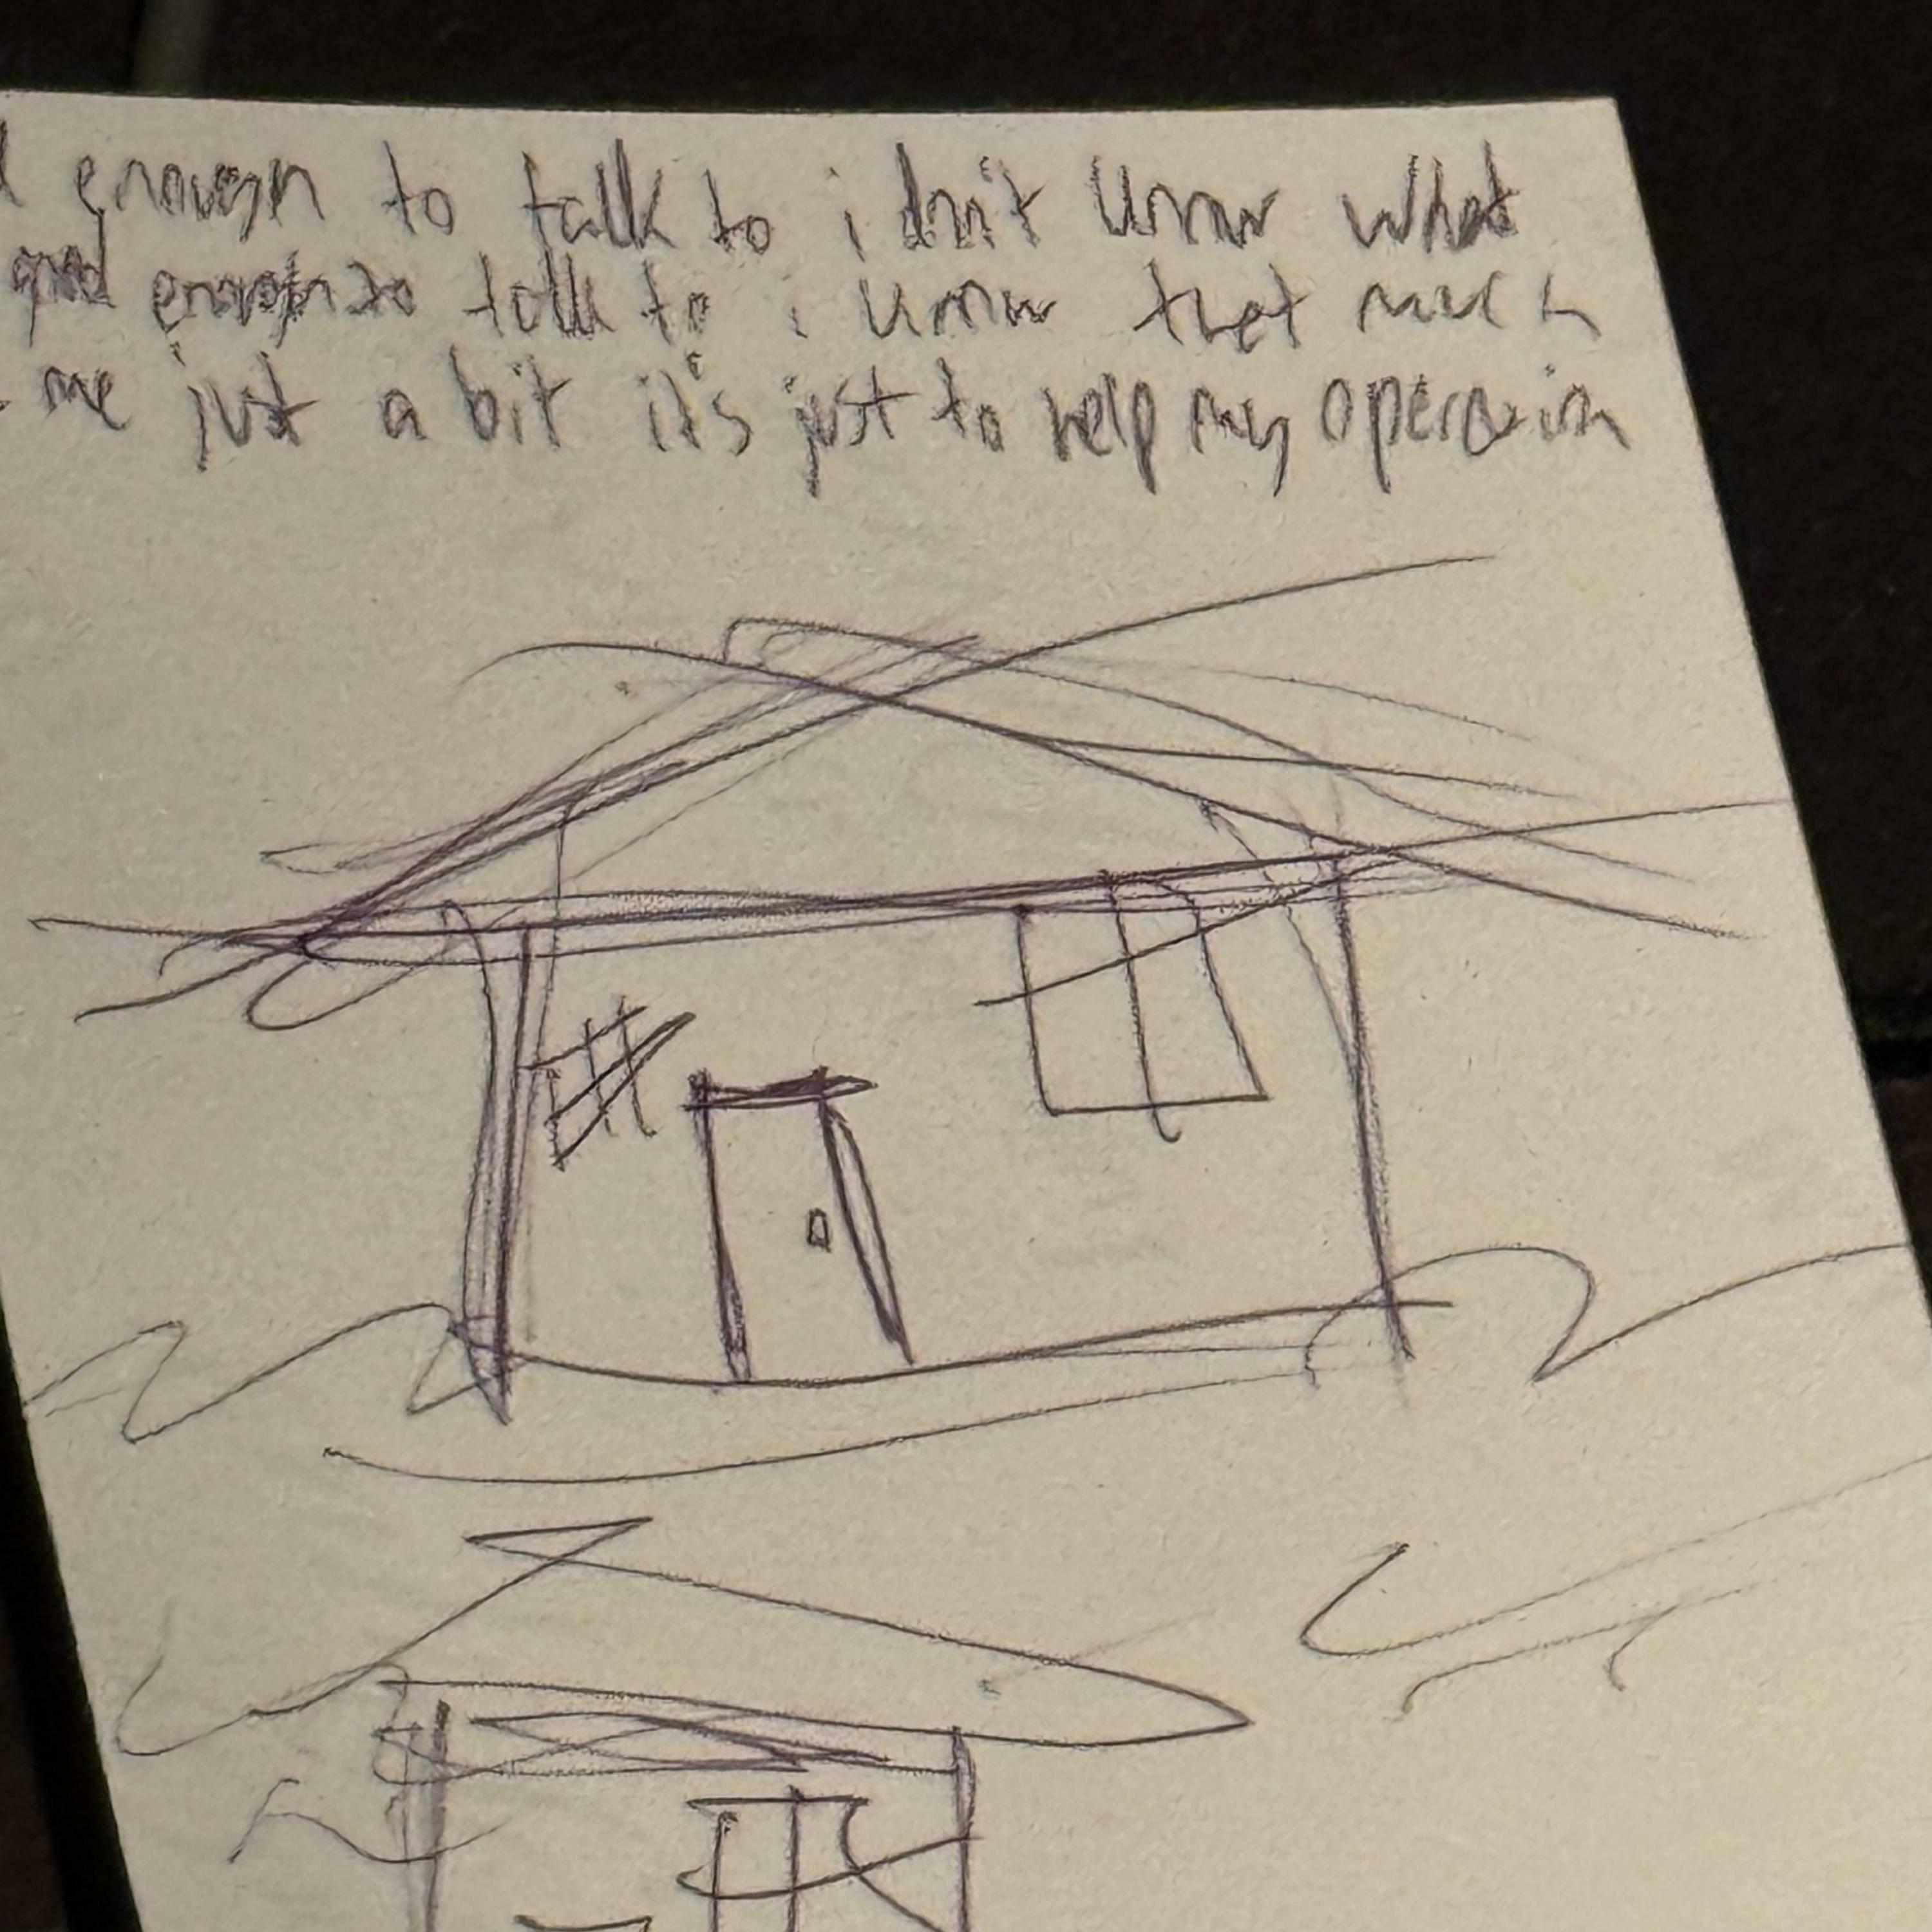 enough to talk to i don't know what
good enough to talk to i know that much
me just a bit it's just to help my operation